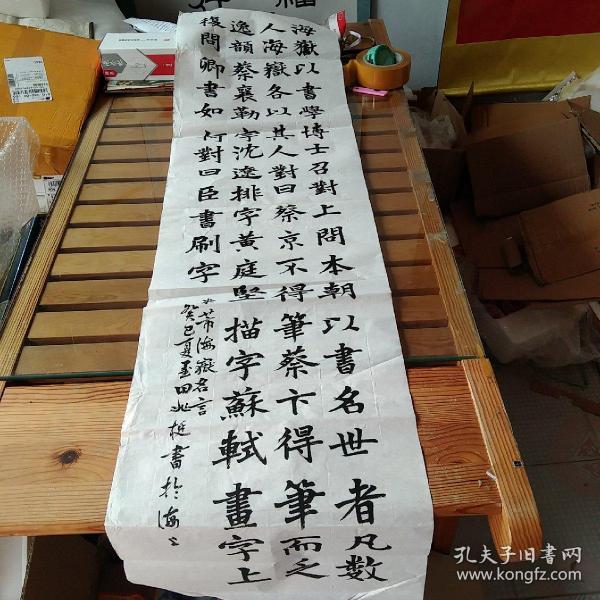 海嶽以書學博士召對上問本朝以書名世者凡數
人海嶽各以其人對曰蔡京不得筆蔡卞得筆而乏
逸韻蔡襄勒字沈遼排字黃庭堅描字蘇軾畫字上
復問卿書如何對曰臣書刷字
芾海嶽名言
癸巳夏至田兆挺書於海上
孔夫子旧书网
www.kongfz.com